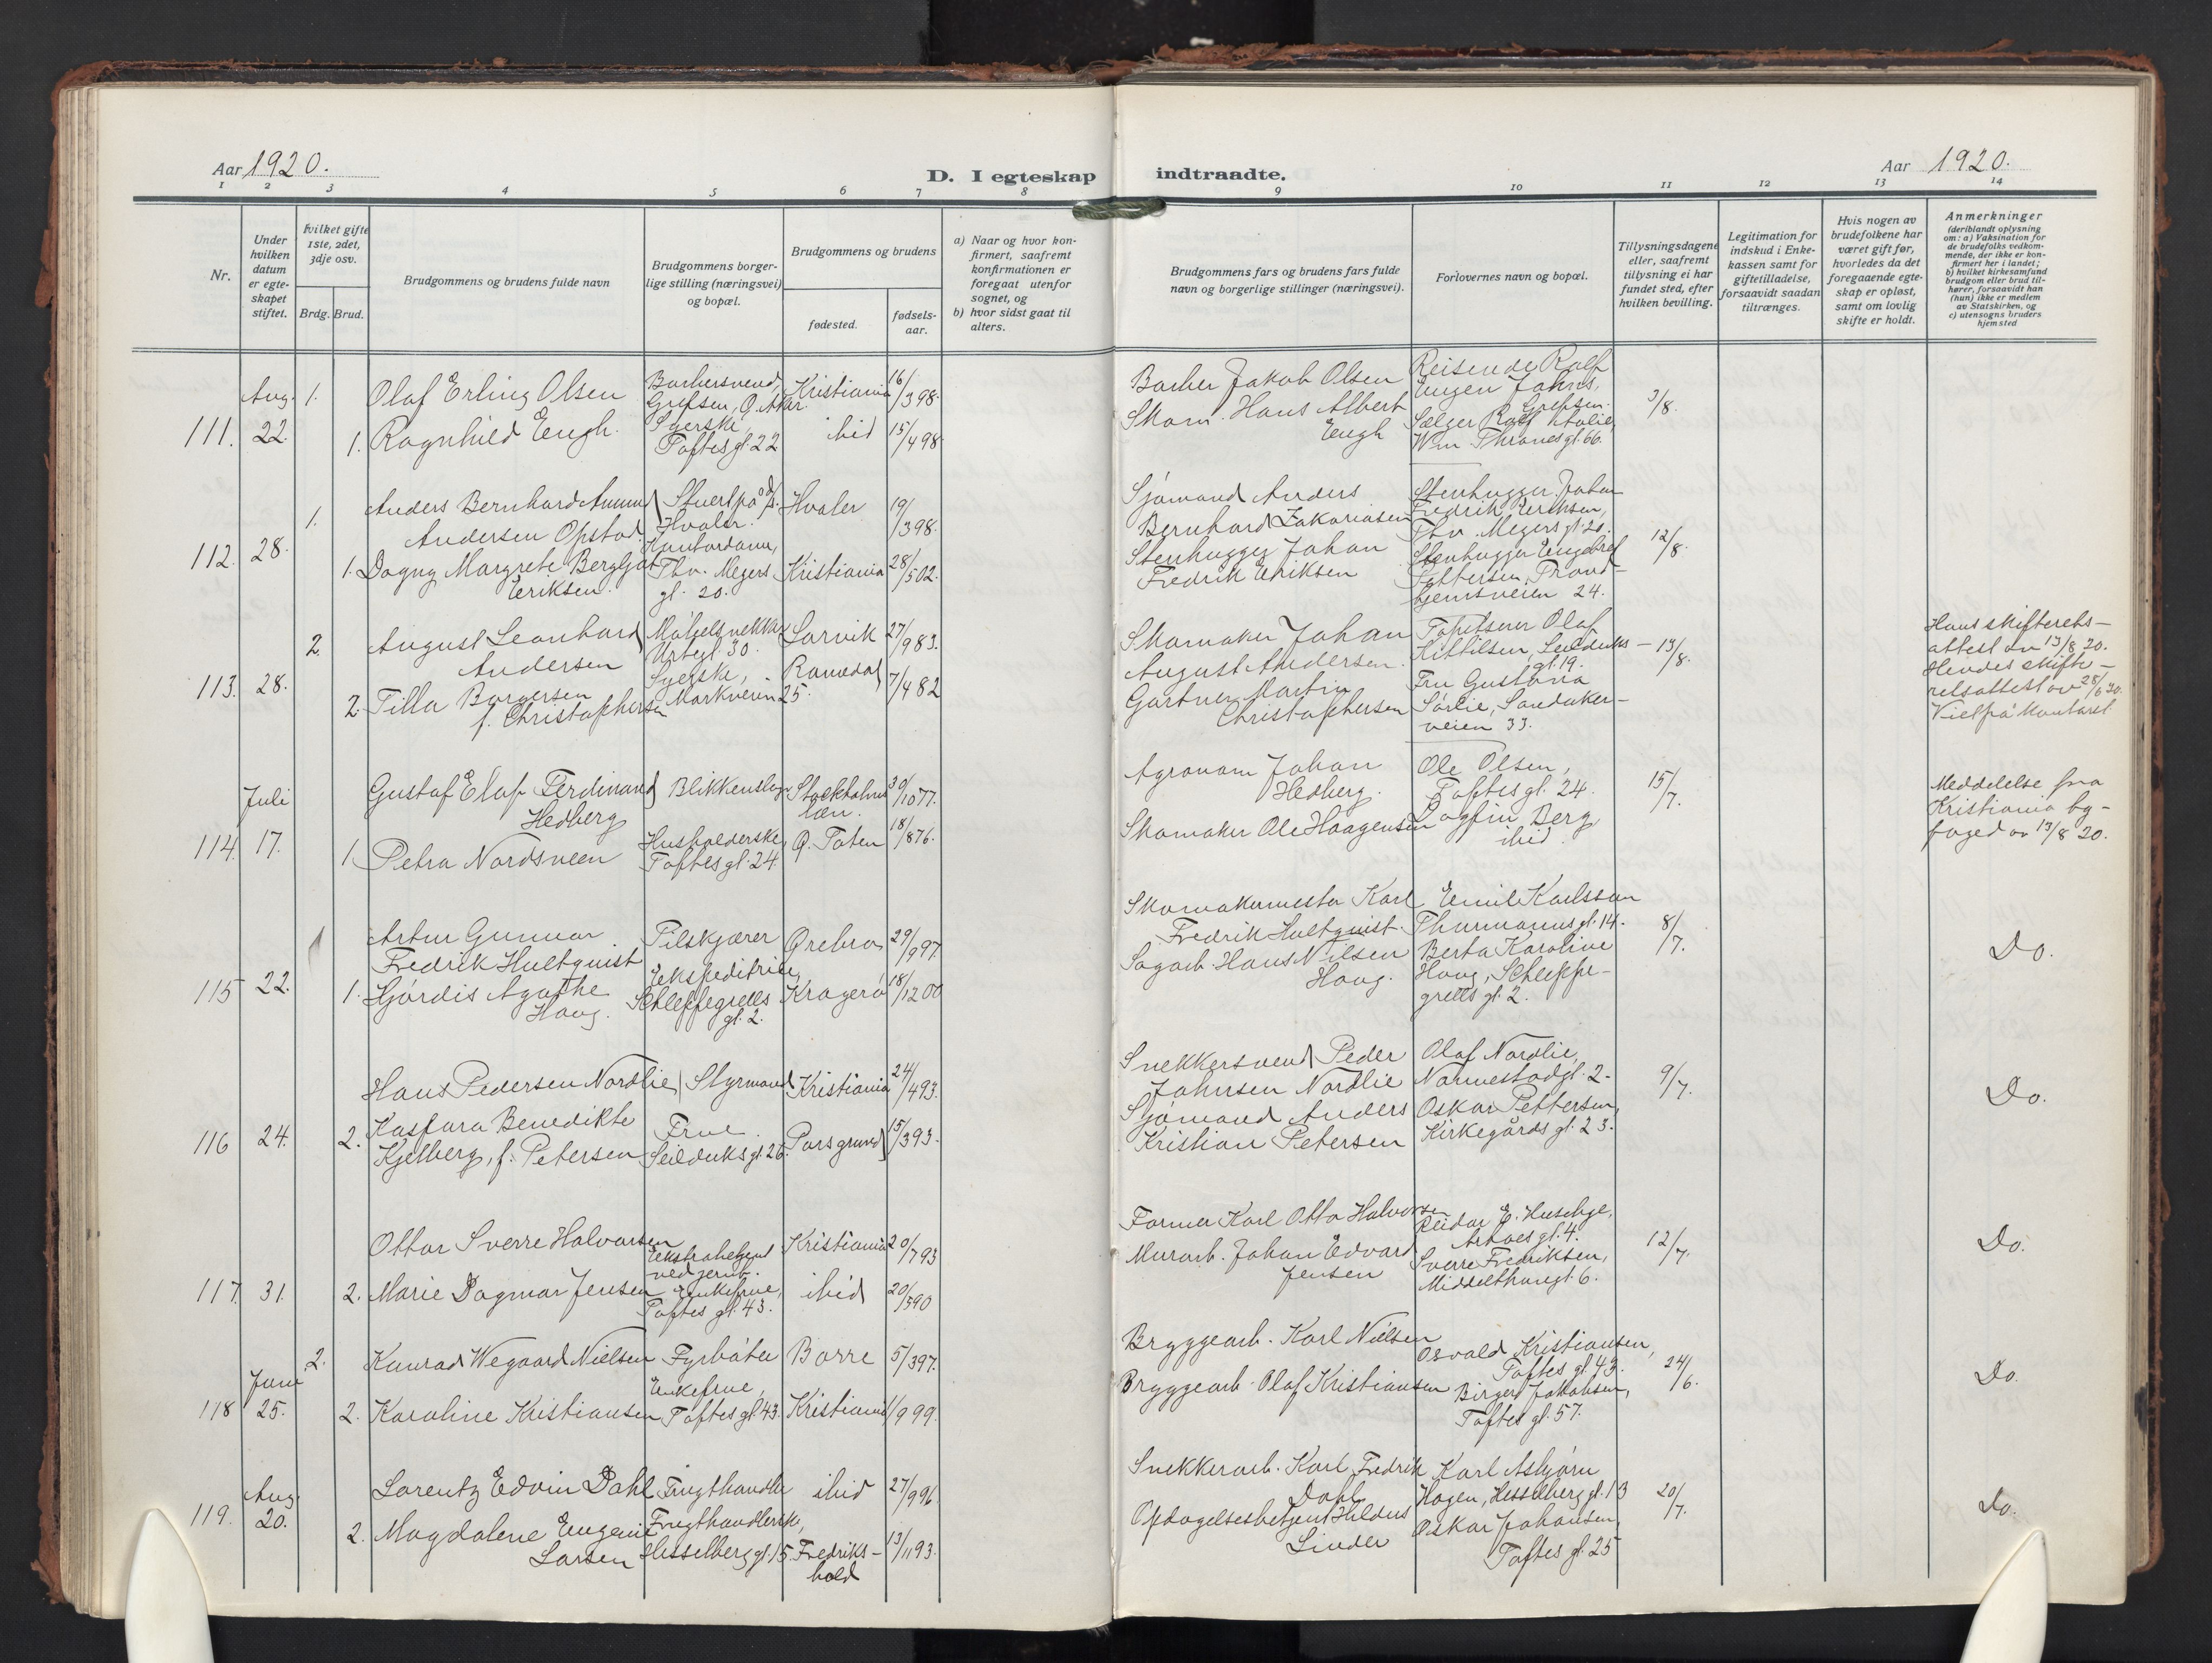 Aar 1920.
D. I egteskap indtraadte.
Aar 1920.
1 2 3 4 5 6 7 8 9 10 11 12 13 14
Nr.
Under
hvilken
datum
er egte-
skapet
stiftet.
hvilket gifte
1ste, 2det,
3dje osv.
Brdg. Brud.
Brudgommens og brudens fulde navn
Brudgommens borger-
lige stilling (næringsvei)
og bopæl.
Brudgommens og brudens
fødested.
fødsels-
aar.
a) Naar og hvor kon-
firmert, saafremt
konfirmationen er
foregaat utenfor
sognet, og
b) hvor sidst gaat til
alters.
Brudgommens fars og brudens fars fulde
navn og borgerlige stillinger (næringsvei).
Forlovernes navn og bopæl.
Tillysningsdagene
eller, saafremt
tillysning ei har
fundet sted, efter
hvilken bevilling.
Legitimation for
indskud i Enke-
kassen samt for
giftetilladelse,
forsaavidt saadan
tiltrænges.
Hvis nogen av
brudefolkene har
været gift før,
hvorledes da det
foregaaende egte-
skap er opløst,
samt om lovlig
skifte er holdt.
Anmerkninger
(deriblandt oplysning
om: a) Vaksination for
de brudefolks vedkom-
mende, der ikke er kon-
firmert her i landet;
b) hvilket kirkesamfund
brudgom eller brud til-
hører, forsaavidt han
(hun) ikke er medlem
av Statskirken, og
c) utensogns bruders
hjemsted
111. Aug. 22. 1.
Olaf Erling Olsen
Barbersvend,
Grefsen, Ø. Aker.
Kristiania
16/398.
1. Ragnhild Engh.
Syerske,
Toftes gl. 22
ibid
15/498
Barber Jakob Olsen
Skom. Hans Albert
Engh
Reisende Rolf
Eugen Johns,
Grefsen.
Sælger Rolf
Wm. Thranes gl. 66.
3/8.
112. 28. 1.
Anders Bernhard
Andersen Opstad.
Stuert på
Hvaler.
Hvaler
19/398.
1. Dagny Margrete Bergljot
Eriksen.
Kontordame,
Thv. Meyers
gl. 20.
Kristiania
28/502.
Sjömand Anders
Bernhard Zakariasen
Stenhugger Johan
Fredrik Eriksen
Stenhugger Johan
Fredrik Eriksen,
Thv. Meyers gl. 20.
Stenhugger Engebret
Pettersen, Trond-
hjemsveien 24.
12/8.
113. 28. 2.
August Leonhard
Andersen
Möbelsnekker
Urtegl. 30.
Larvik
27/983.
2. Tilla Børgersen
f. Christophersen
Syerske,
Markveien 25.
Ramedal
7/482
Skomaker Johan
August Andersen.
Gartner Martin
Christophersen
Tapetserer Olaf
Kittilsen, Seilduks-
gl. 19.
Fru Gustava
Sörlie, Sandaker-
veien 33.
13/8.
Hans skifterets-
attest av 13/8 20.
Hendes skifte-
retsattest av 28/6 20.
Viet på kontoret.
114. Juli 17.
Gustaf Elof Ferdinand
Hedberg
Blikkenslager
Stockholms
læn.
30/1077.
1. Petra Nordsveen
Husholderske,
Toftes gl. 24
Ø. Toten
18/876.
Agronom Johan
Hedberg.
Skomaker Ole Haagensen
Ole Olsen,
Toftes gl. 24.
Dagfin Berg
ibid.
15/7.
Meddelelse fra
Kristiania by-
foged av 13/8 20.
115 22. 1
Artur Gunnar
Fredrik Hultquist
Pilskjærer
Ørebro
29/997.
1. Hjördis Agathe
Haug.
Ekspeditrice
Schleppegrells
gl. 2.
Kragerö
18/1200
Skomakermester Karl
Fredrik Hultquist
Sagarb. Hans Nilsen
Haug.
Emil Karlsson
Thurmanns gl. 14.
Berta Karoline
Haug, Schleppe-
grells gl. 2.
8/7.
Do.
116 24.
Hans Pedersen Nordlie
Styrmand
Kristiania
24/493.
2. Kaspara Benedikte
Kjelberg, f. Petersen
Frue
Seilduks gl. 26.
Porsgrund
15/393.
Snekkersvend Peder
Johnsen Nordlie
Sjömand Anders
Kristian Petersen
Olaf Nordlie,
Nannestadgl. 2.
Oskar Pettersen,
Kirkegårds gl. 23.
9/7.
Do.
117. 31.
Ottar Sverre Halvorsen
Ekstrabetjent
ved jernb.
Kristiania
20/793
2. Marie Dagmar Jensen
Enkefrue,
Toftes gl. 43.
ibid
20/590
Former Karl Otto Halvorsen
Murarb. Johan Edvard
Jensen
Reidar E. Husebye,
gl. 4.
Sverre Fredriksen,
Middelthunsgl. 6.
12/7.
Do.
118 Juni 25. 2.
Konrad Wegaard Nielsen
Fyrböter
Borre
5/397.
2. Karoline Kristiansen
Enkefrue,
Toftes gl. 43.
Kristiania
1/999.
Bryggearb. Karl Nielsen
Bryggearb. Olaf Kristiansen
Osvald Kristiansen,
Toftes gl. 43.
Birger Jakobsen,
Toftes gl. 57.
24/6.
Do.
119. Aug. 20.
Lorentz Edvin Dahl
Frugthandler
ibid
27/996.
2. Magdalene Eugenie
Larsen
Frugthandlerske,
Hesselberg gl. 15.
Fredriks-
hald
13/1193.
Snekkerarb. Karl Fredrik
Dahl
Opdagelsesbetjent Hildus
Linder
Karl Asbjørn
Hagen, Hesselberg gl. 13
Oskar Johansen,
Toftes gl. 25
20/7.
Do.